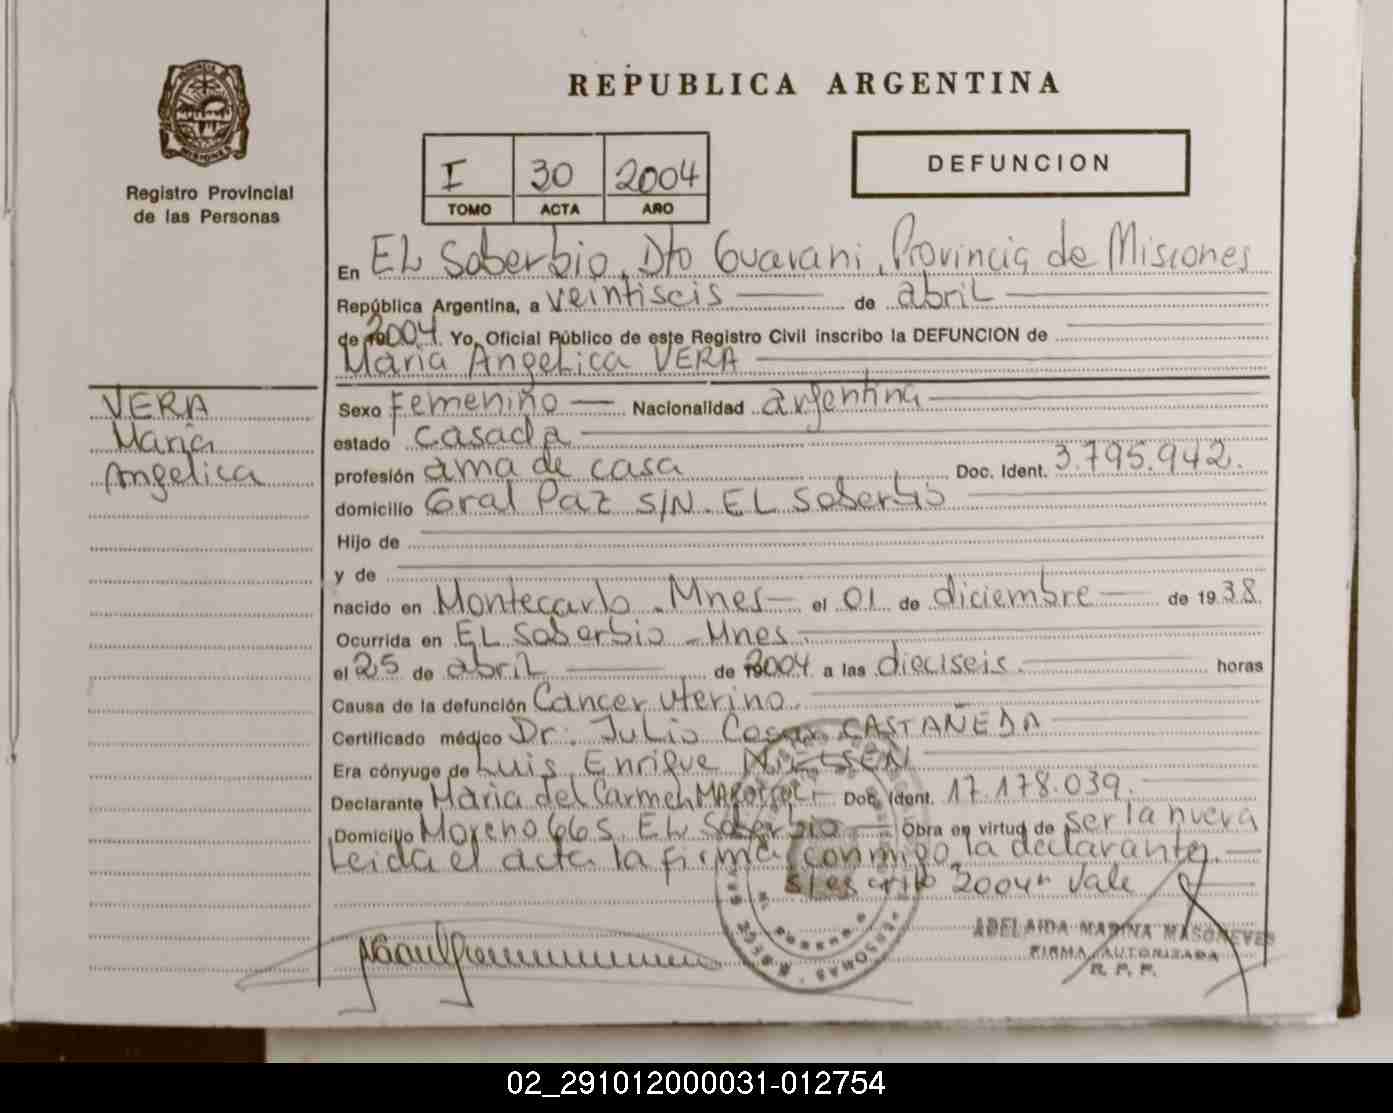 REPUBLICA ARGENTINA
PROVINCIA DE
MISIONES
Registro Provincial
de las Personas
I 30 2004
TOMO ACTA AÑO
DEFUNCION
En EL Soberbio, Dto Guarani, Provincia de Misiones
República Argentina, a veintiseis de abril
de 2004. Yo, Oficial Público de este Registro Civil inscribo la DEFUNCION de
Maria Angelica VERA
VERA
Maria
Angelica
Sexo Femenino Nacionalidad argentina
estado casada
profesión ama de casa Doc. Ident. 3.795.942.
domicilio Gral Paz S/N. EL Soberbio
Hijo de
y de
nacido en Montecarlo - Mnes - el 01 de diciembre de 1938.
Ocurrida en EL Soberbio - Mnes.
el 25 de abril de 2004 a las dieciseis. horas
Causa de la defunción Cancer uterino.
Certificado médico Dr. Julio Cesar CASTAÑEDA
Era cónyuge de Luis Enrique
Declarante Maria del Carmen Doc. Ident. 17.178.039.
Domicilio Moreno 665. EL Soberbio Obra en virtud de ser la nuera
Leida el acta la firma conmigo la declarante.
2004" Vale
ADELAIDA MARINA
FIRMA AUTORIZADA
R. P. P.
02_291012000031-012754